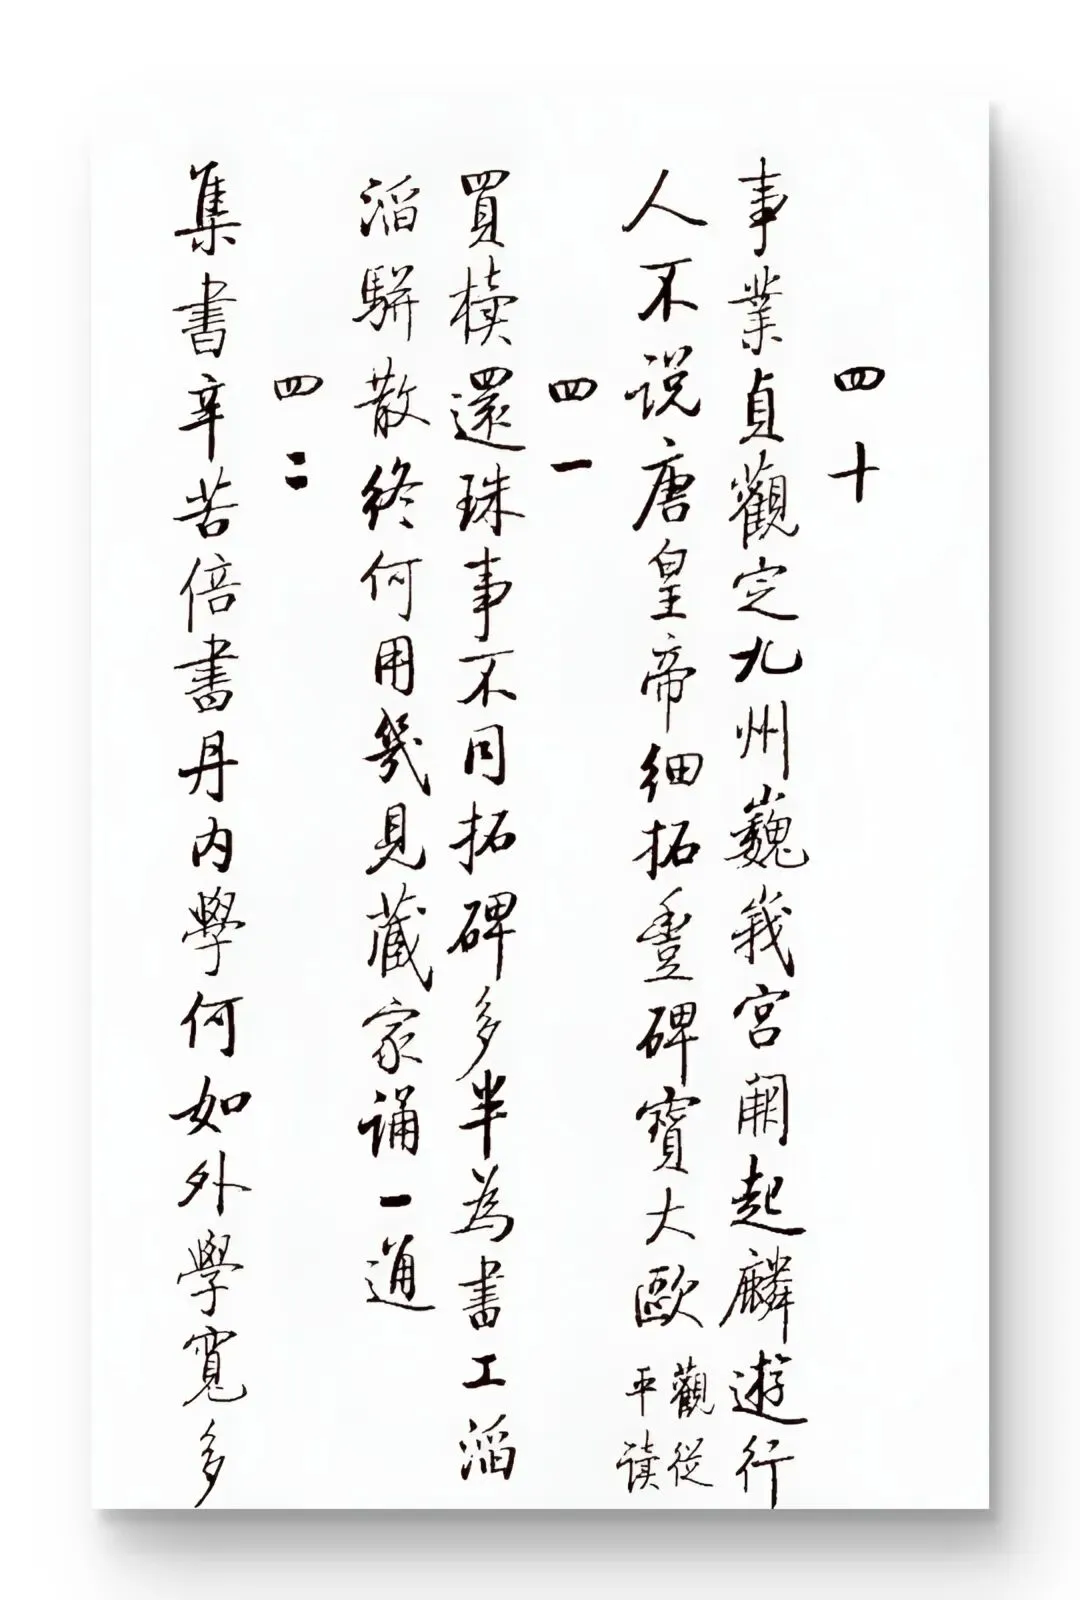 四十
事業貞觀定九州巍峩宮闕起麟遊行
人不说唐皇帝細拓豐碑寶大歐觀從平读
四一
買櫝還珠事不同拓碑多半為書工滔
滔駢散終何用幾見藏家誦一通
四二
集書辛苦倍書丹内學何如外學寬多